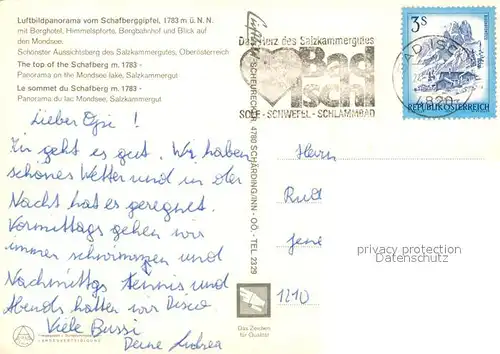 Luftbildpanorama vom Schafberggipfel, 1783 m ü. N. N.
mit Berghotel, Himmelspforte, Bergbahnhof und Blick auf
den Mondsee.
Schönster Aussichtsberg des Salzkammergutes, Oberösterreich
The top of the Schafberg m. 1783 -
Panorama on the Mondsee lake, Salzkammergut
Le sommet du Schafberg m. 1783 -
Panorama du lac Mondsee, Salzkammergut
Lieber Opi !
geht es gut. Wir haben
schönes Wetter und in der
Nacht hat es geregnet.
Vormittags gehen wir
immer schwimmen und
Nachmittgs tennis und
Abends hatten wir Disco.
Viele Bussi
Deine Andrea
4783 SCHÄRDING/INN - OÖ. - TEL. 2329
Das Herz des Salzkammergutes
Bad
Ischl
SOLE - SCHWEFEL - SCHLAMMBAD
BAD ISCHL
4820
3S
REPUBLIK ÖSTERREICH
Herrn
Rudi
1210
privacy protection
Datenschutz
Das Zeichen
für Qualität